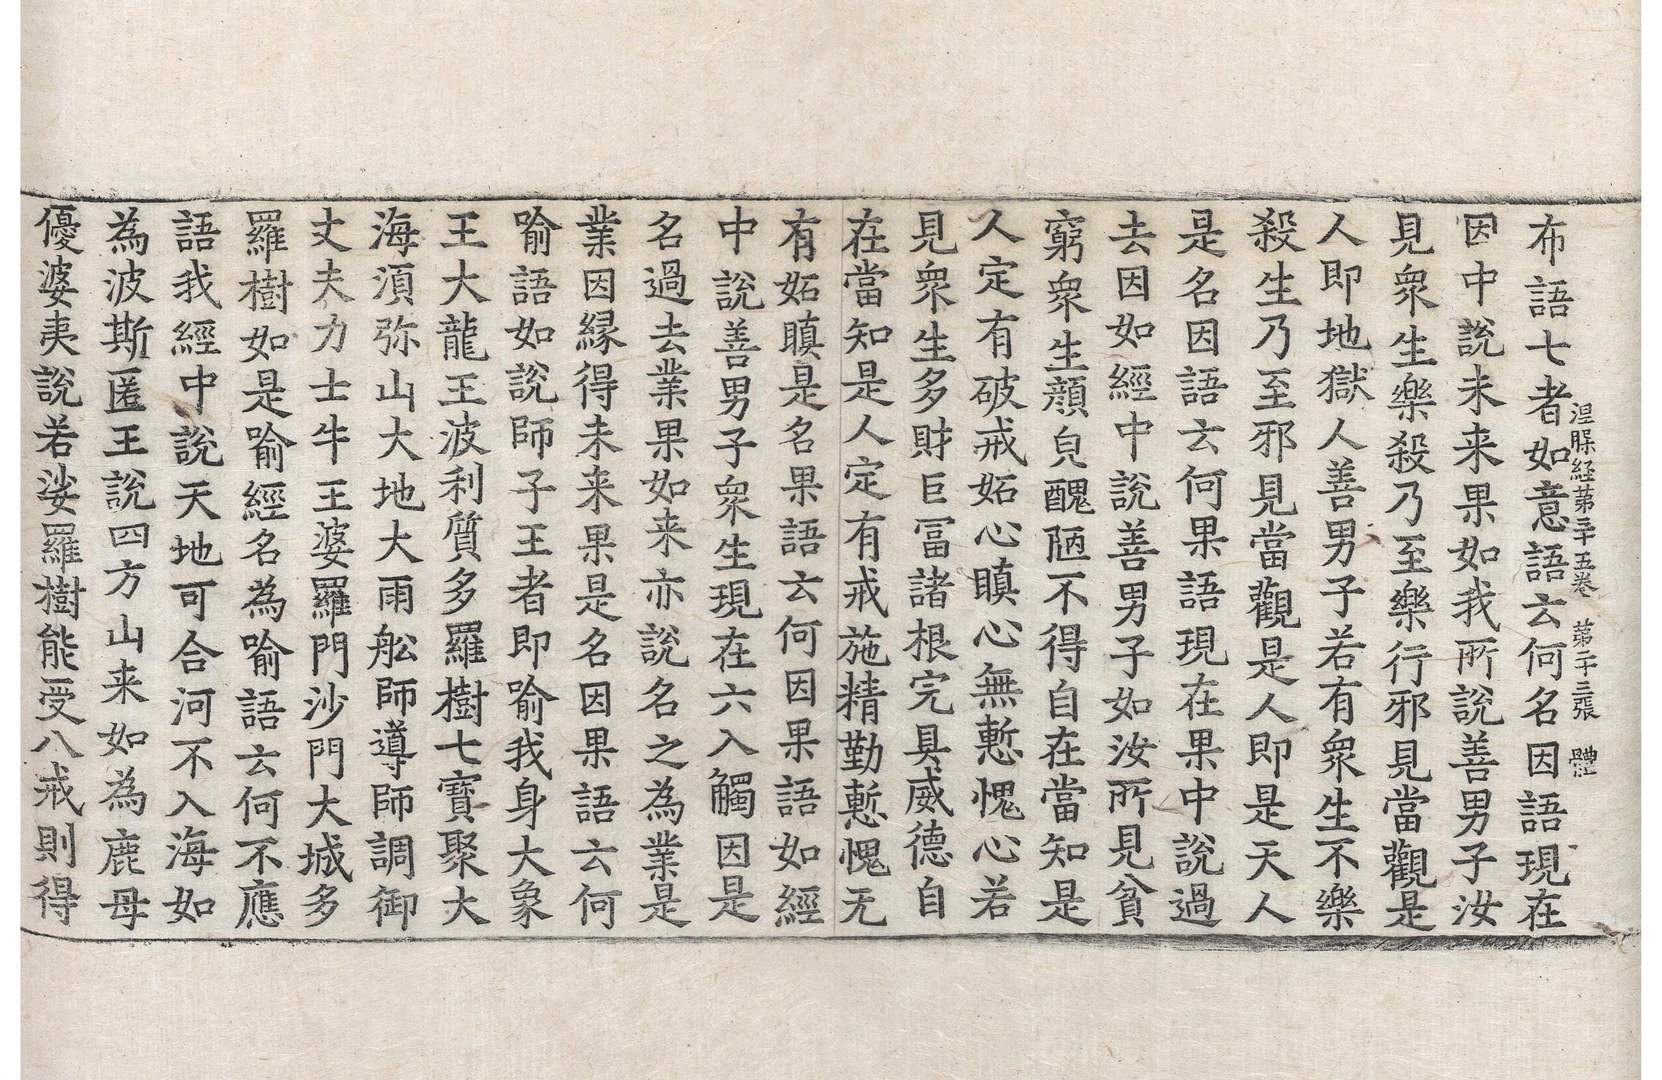 涅槃経第三十五卷　第二十三張　體
布語七者如意語云何名因語現在
因中說未来果如我所說善男子汝
見衆生樂殺乃至樂行邪見當觀是
人即地獄人善男子若有衆生不樂
殺生乃至邪見當觀是人即是天人
是名因語云何果語現在果中說過
去因如經中說善男子如汝所見貧
窮衆生顔皃醜陋不得自在當知是
人定有破戒妬心瞋心無慙愧心若
見衆生多財巨冨諸根完具威德自
在當知是人定有戒施精勤慙愧无
有妬瞋是名果語云何因果語如經
中說善男子衆生現在六入觸因是
名過去業果如来亦說名之為業是
業因縁得未来果是名因果語云何
喻語如說師子王者即喻我身大象
王大龍王波利質多羅樹七寶聚大
海湏弥山大地大雨舩師導師調御
丈夫力士牛王婆羅門沙門大城多
羅樹如是喻經名為喻語云何不應
語我經中說天地可合河不入海如
為波斯匿王說四方山来如為鹿母
優婆夷說若娑羅樹能受八戒則得